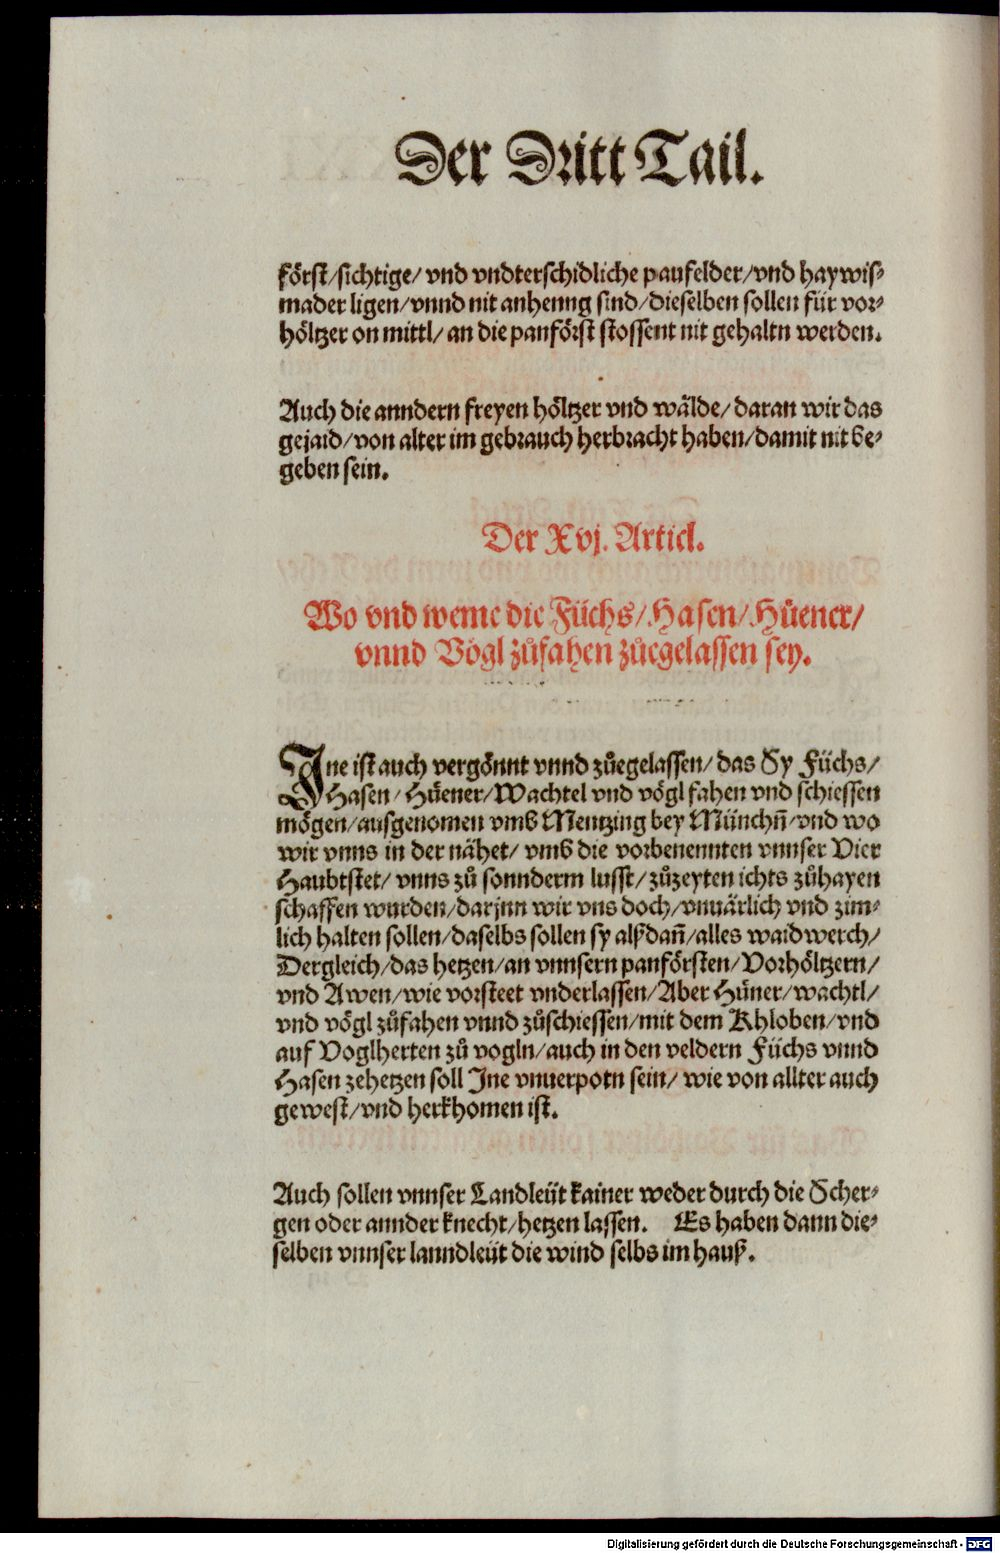 Der Dritt Tail.
först/sichtige/ vnd vndterschidliche paufelder/vnd haywis⸗
mader ligen/vnnd nit anhenng sind/dieselben sollen für vor⸗
höltzer on mittl/ an die panförst stossent nit gehaltn werden.
Auch die anndern freyen höltzer vnd wälde/daran wir das
gejaid/von alter im gebrauch herbracht haben/damit nit be⸗
geben sein.
Der Xvj. Articl.
Wo vnd weme die Füchs/Hasen/Hüener/
vnnd Vögl zůfahen zůegelassen sey.
Ine ist auch vergönnt vnnd zůegelassen/das Sy Füchs/
Hasen/Hüener/Wachtel vnd vögl fahen vnd schiessen
mögen/ausgenomen vmb Mentzing bey Münchn̄/vnd wo
wir vnns in der nähet/ vmb die vorbenennten vnnser Vier
Haubtstet/ vnns zů sonnderm lusst/zůzeyten ichts zůhayen
schaffen wurden/darjnn wir vns doch/vnuärlich vnd zim⸗
lich halten sollen/daselbs sollen sy alßdan̄/alles waidwerch/
Dergleich/das hetzen/an vnnsern panförsten/Vorhöltzern/
vnd Awen/wie vorsteet vnderlassen/Aber Hüner/wachtl/
vnd vögl zůfahen vnnd zůschiessen/mit dem Khloben/vnd
auf Voglherten zů vogln/auch in den veldern Füchs vnnd
Hasen zehetzen soll Ine vnuerpotn sein/ wie von allter auch
gewest/vnd herkhomen ist.
Auch sollen vnnser Landleüt kainer weder durch die Scher⸗
gen oder annder knecht/hetzen lassen. Es haben dann die⸗
selben vnnser lanndleüt die wind selbs im hauß.
Digitalisierung gefördert durch die Deutsche Forschungsgemeinschaft - DFG